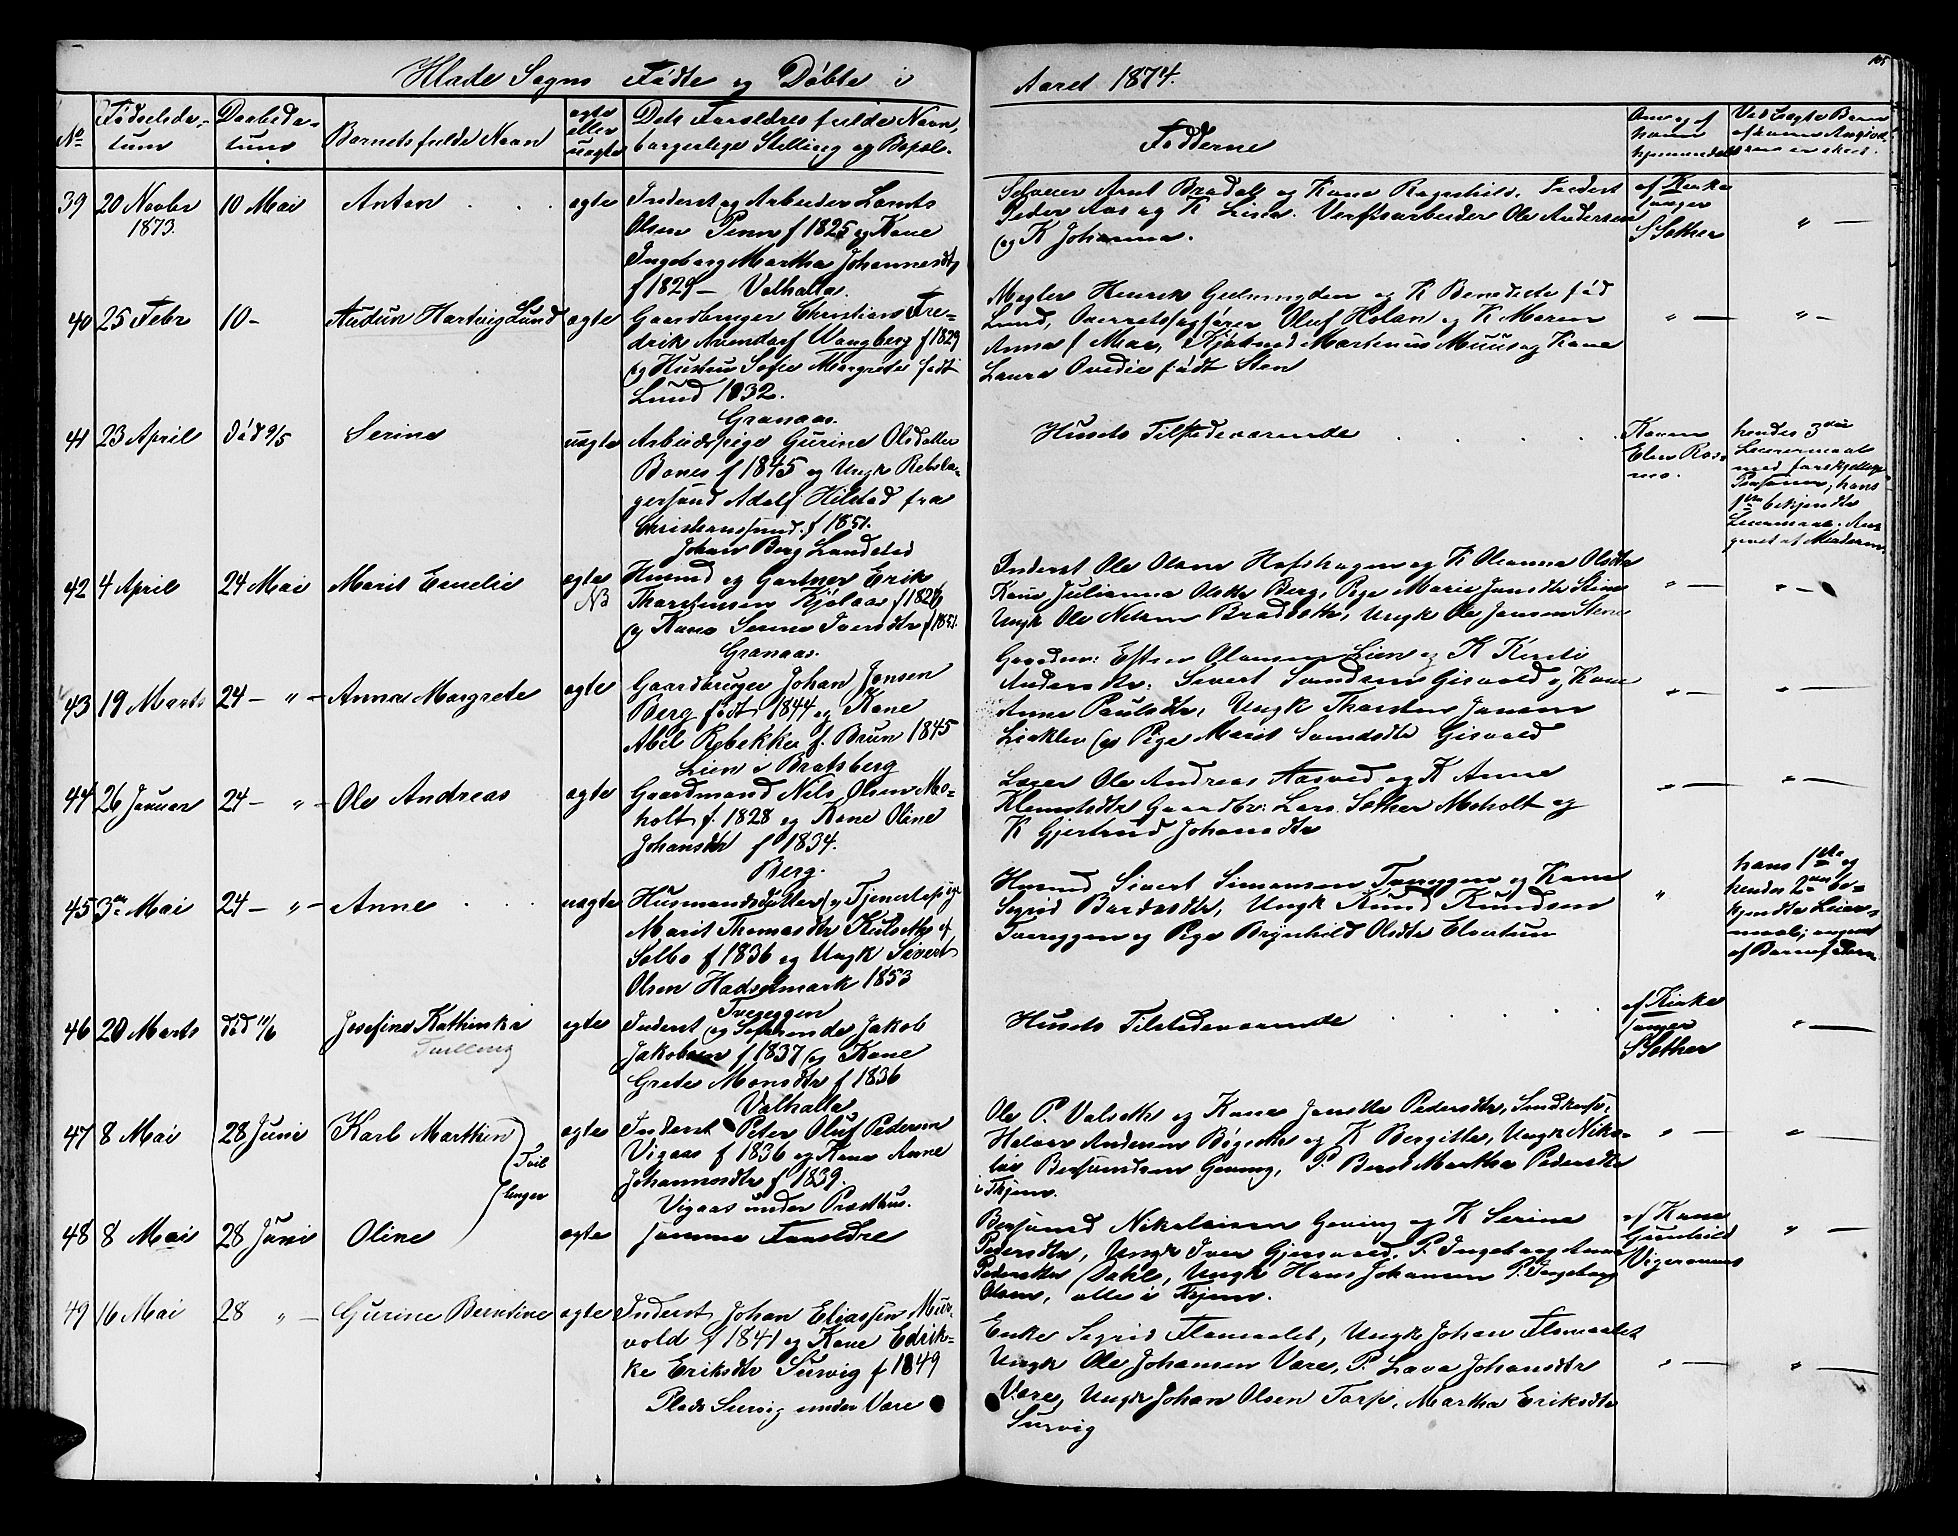 105
Hlade Sogns Fødte og Døbte i Aaret 1874.
No
Fødselsda-
tum
Daabsda-
tum
Barnets fulde Navn
ægte
eller
uægte
Dets Forældres fulde Navn,
borgerlige Stilling og Bopæl.
Fadderne
Om og af
hvem
hjemmedøbt
Ved uægte Børn
39 20 Novbr 10 Mai Anton ægte
1873.
Inderst og Arbeider Lornts
Olsen Penn f 1825 og Kone
Ingeborg Martha Johannesdtr
f 1829 — Valhalla.
Arnt Bradall og Kone Ragnhild, Inderst
Peder Aas og K Lisa. Verftsarbeider Ole Andersen
og K Johanna.
af Kirke
sanger
S Sother
" —
40 25 Febr 10 - Audun Hartvig Lund ægte
Gaardbruger Christian Fre-
drik Avendorf Wangberg f 1829
og Hustru Sofie Margrete født
Lund 1832.
Granaas.
Mægler Henrik og K Benedicte fød
Lund, Overretssagfører Oluf Holan og K Maren
Anna f Moe, Kjøbmd Martinus Muus og Kone
Laura Ovedie født Sten
" —
" —
41 23 April død 9/5 Serine uægte
Arbeidspige Gurine Olsdatter
Bones f 1845 og Ungk Rebsla-
gersvend Adolf Hilstad fra
Christianssund f 1851.
Husets Tilstedeværende
Konen
Elen Ros-
mo.
hendes 3die
Leiermaal
med forskjellige
Personer, hans
1ste bekjendte
Leiermaal. An-
givet af Moderen
Johan Berg Landstad
42 4 April 24 Mai Marit Emelie ægte
NB
Husmd og Gartner Erik
Thorstensen Kjølaas f 1826
og Kone Serine Iversdtr f 1851.
Granaas.
Inderst Ole Olsen Hofshagen og K Oleanna Olsdtr
Kone Julianna Olsdtr Berg, Pige Marie Jonsdtr Stene
Ungk Ole Nilsen Bradsdtr, Ungk Ole Jensen Stene
" —
" —
43 19 Marts 24 — " — Anna Margrete ægte
Gaardbruger Johan Jensen
Berg født 1844 og Kone
Abel Rebekka f. Brun 1845
Lien i Bratsberg
Gaardm: Esten Olausen Lien og K Kirsti
Andersdtr: Sivert Svendsen Gisvold og Kone
Anne Paulsdtr, Ungk Thorsten Jensen
og Pige Marit Svendsdtr Gisvold
" —
" —
44 26 Januar 24 — " — Ole Andreas ægte
Gaardmand Nils Olsen Mo-
holt f. 1828 og Kone Oline
Johansdtr f 1834.
Berg.
Ole Andreas Aasved og K Anne
Klemetsdtr Gaardbr: Lars Sother Moholt og
K Gjertrud Johansdtr
" —
" —
45 3die Mai 24 — " — Anne uægte
Husmandsdatter og Tjenestepige
Marit Thomasdtr Kulseth af
Selbo f 1836 og Ungk Sivert
Olsen Hadselmark 1853
Tvereggen
Husmd Sivert Simonsen Tvereggen og Kone
Sigrid Bardosdtr, Ungk Knud Knudsen
Tvereggen og Pige Brynhild Olsdtr
"
hans 1ste og
hendes 2den be-
kjendte Leier-
maal; angivet
af Barnefaderen
46 20 Marts død 11/6 Josefine Kathinka ægte
Tvilling
Inderst og Sømand Jakob
Jakobsen f 1837 og Kone
Grete Monsdtr f 1836
Valhalla
Husets Tilstedeværende
af Kirke
sanger
S Sother
" —
47 8 Mai 28 Juni Karl Marthin ægte
Tvil
linger
Inderst Peter Oluf Pedersen
Vigaas f 1836 og Kone Anne
Johannesdtr f 1839.
Vigaas under Presthus.
Ole P. Valseth og Kone Jonetta Pedersdtr,
Halvor Andersen Bøgseth og K Bergitte, Ungk Niko-
lai Bersvendsen Geving, P. Berit Martha Pedersdtr
i Thjem.
" —
" —
48 8 Mai 28 Juni Oline ægte
samme Forældre
Bersvend Nikolaisen Geving og K Serine
Pedersdtr, Ungk Iver Gjersvold. P. Ingeborg Anna
Pedersdtr Dahl, Ungk Hans Johansen P. Ingeborg
Olsen, alle i Thjem.
af Kone
Gunhild
" —
49 16 Mai 28 " — Gurine Berntine ægte
Inderst Johan Eliassen Mur-
vold f 1841 og Kone Edrik-
ke Eriksdtr Survig f 1849
Plads Survig under Være
Enke Sigrid Flomaalet, Ungk Johan Flomaalet
Ungk Ole Johansen Være, P. Lava Johansdtr
Være, Ungk Johan Olsen Torp, Martha Eriksdtr
Survig
" —
" —